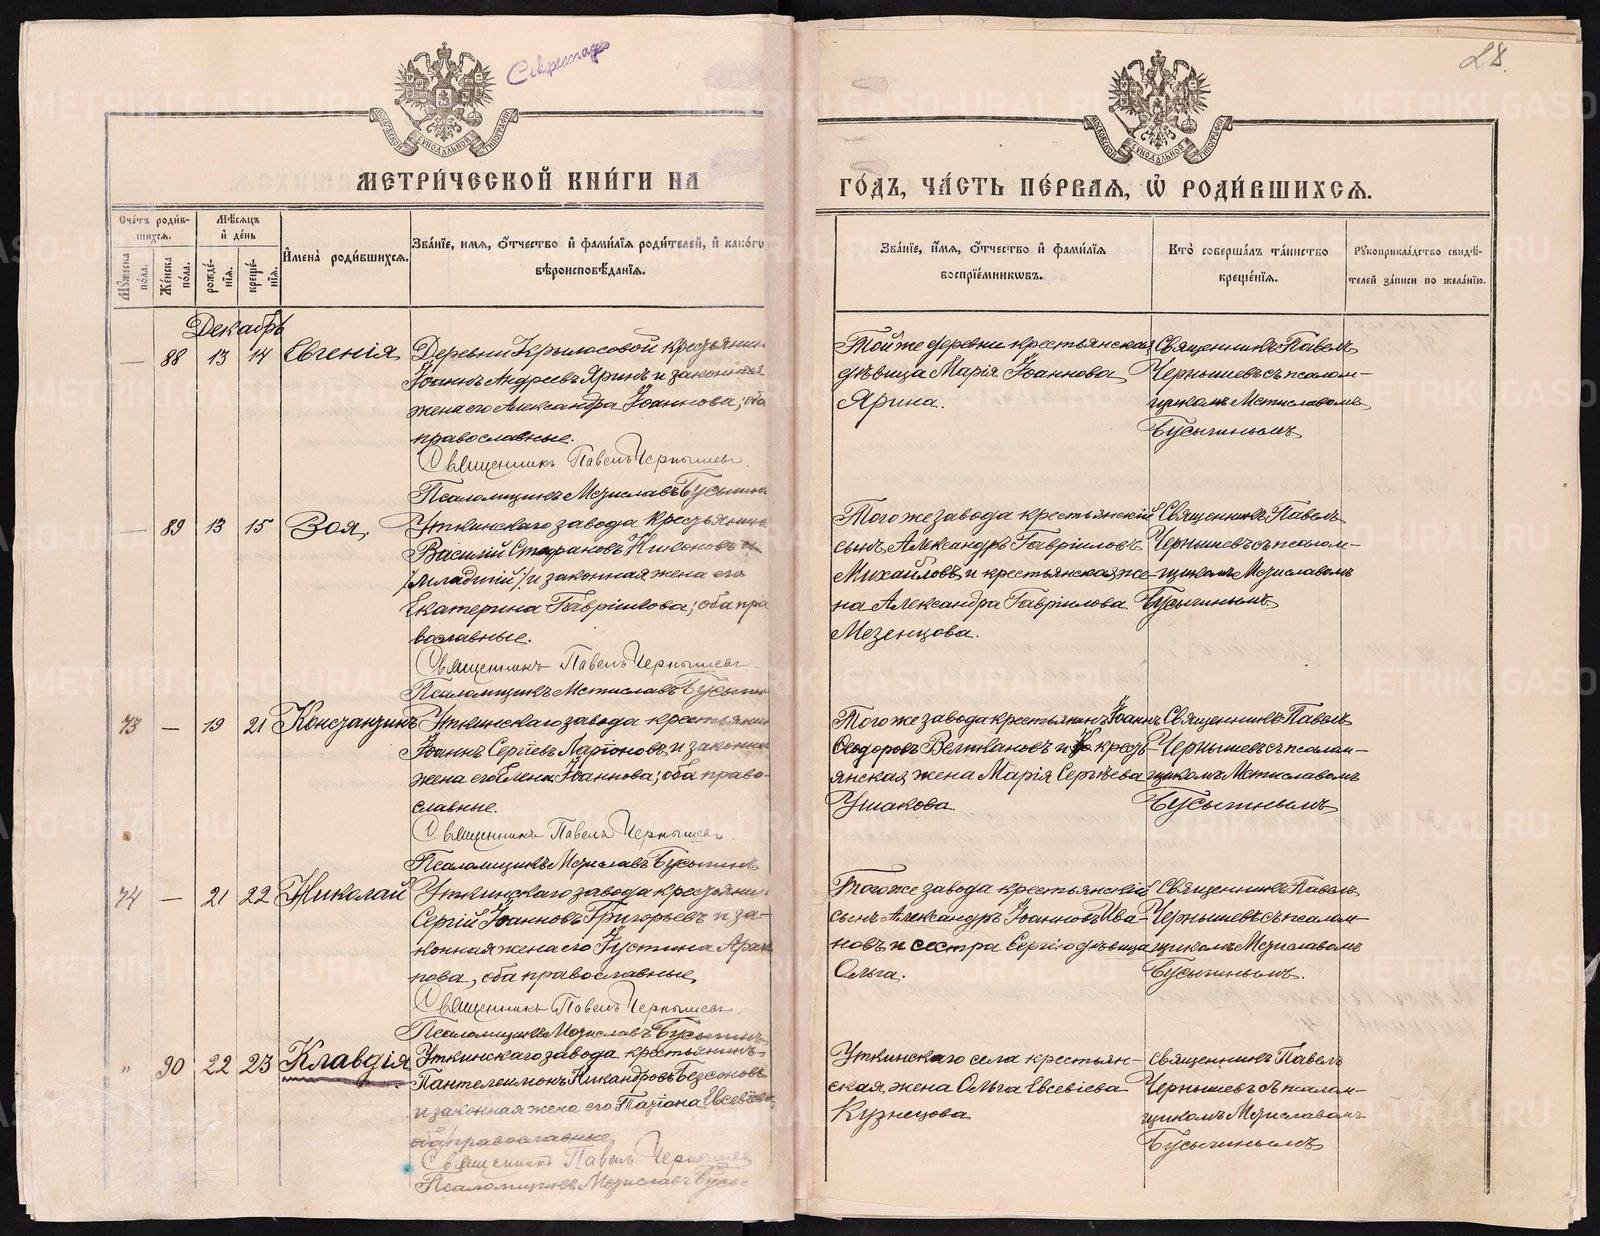 28.
МЕТРИ́ЧЕСКОЙ КНИ́ГИ НА
ГО́ДЪ, ЧА́СТЬ ПЕ́РВАѦ, Ѽ РОДИ́ВШИХСѦ.
Сче́тъ роди́в-
шихсѧ.
Мꙋ́жеска по́ла.
Же́нска по́ла.
Мѣ́сѧцъ
и҆ де́нь
рожде́-
нїѧ.
креще́-
нїѧ.
И҆мена̀ роди́вшихсѧ.
Зва́нїе, и҆мѧ, ѻ҆́тчество и҆ фами́лїѧ роди́телей, и҆ како́гѡ
вѣроисповѣ́данїѧ.
Зва́нїе, и҆́мѧ, ѻ҆́тчество и҆ фами́лїѧ
воспрїе́мникѡвъ.
Кто̀ соверша́лъ та́инство
креще́нїѧ.
Рꙋкоприкла́дство свидѣ́-
телей за́писи по жела́нїю.
Декабрь
— 88 13 14 Евгенія
Деревни Крылосовой крестьянин
Іоаннъ Андреевъ Яринъ и законная
жена его Александра Іоаннова; оба
православные.
Священникъ Павелъ Чернышевъ.
Псаломщикъ Мстиславъ Бусыгинъ
Той же деревни крестьянская
дѣвица Марія Іоаннова
Ярина.
Священникъ Павелъ
Чернышевъ съ псалом-
щикомъ Мстиславомъ
Бусыгинымъ
— 89 13 15 Зоя,
Уткинскаго завода крестьянинъ
Василій Никоновъ
/младшій/ и законная жена его
Екатерина Гавріилова; оба пра
вославные.
Священникъ Павелъ Чернышевъ
Псаломщикъ Мстиславъ Бусыгин
Того же завода крестьянскій
сынъ Александръ Гавріиловъ
Михайловъ и крестьянская же-
на Александра Гавріилова
Мезенцова.
Священникъ Павелъ
Чернышевъ съ псалом-
щикомъ Мстиславомъ
Бусыгинымъ
73 — 19 21 Константинъ
Уткинскаго завода крестьянин
Іоаннъ Сергіевъ Ларіоновъ и законна
жена его Елена Іоаннова; оба право-
славные.
Священникъ Павелъ Чернышевъ.
Псаломщикъ Мстиславъ Бусыгинъ
Того же завода крестьянинъ Іоаннъ
Ѳеодоровъ и кресть-
янская жена Марія Сергѣева
Ушакова.
Священникъ Павелъ
Чернышевъ съ псалом-
щикомъ Мстиславомъ
Бусыгинымъ
74 — 21 22 Николай
Уткинскаго завода крестьянин
Сергій Іоанновъ Григорьевъ и за-
конная жена его Іустина
нова, оба православные,
Священникъ Павелъ Чернышевъ.
Псаломщикъ Мстиславъ Бусыгинъ
Того же завода крестьянскій
сынъ Александръ Іоанновъ Ива-
новъ и сестра Сергію дѣвица
Ольга.
Священникъ Павелъ
Чернышевъ съ псалом-
щикомъ Мстиславомъ
Бусыгинымъ.
" 90 22 23 Клавдія
Уткинскаго завода крестьянинъ
Пантелеимонъ Никандровъ Безсоновъ
и законная жена его Татіана Евсевіева
оба православные
Священникъ Павелъ Чернышев
Псаломщикъ Мстиславъ Бусы
Уткинскаго села крестьян-
ская жена Ольга Евсевіева
Кузнецова
Священникъ Павелъ
Чернышевъ съ псалом-
щикомъ Мстиславомъ
Бусыгинымъ
METRIKI.GASO-URAL.RU